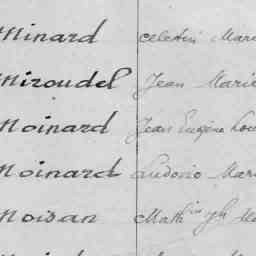 Minard Celestin Marie
Miroudel Jean Marie
Moinard Jean Eugène Lou
Moinard Ludovic Mar
Moisan Math in Jh Ma